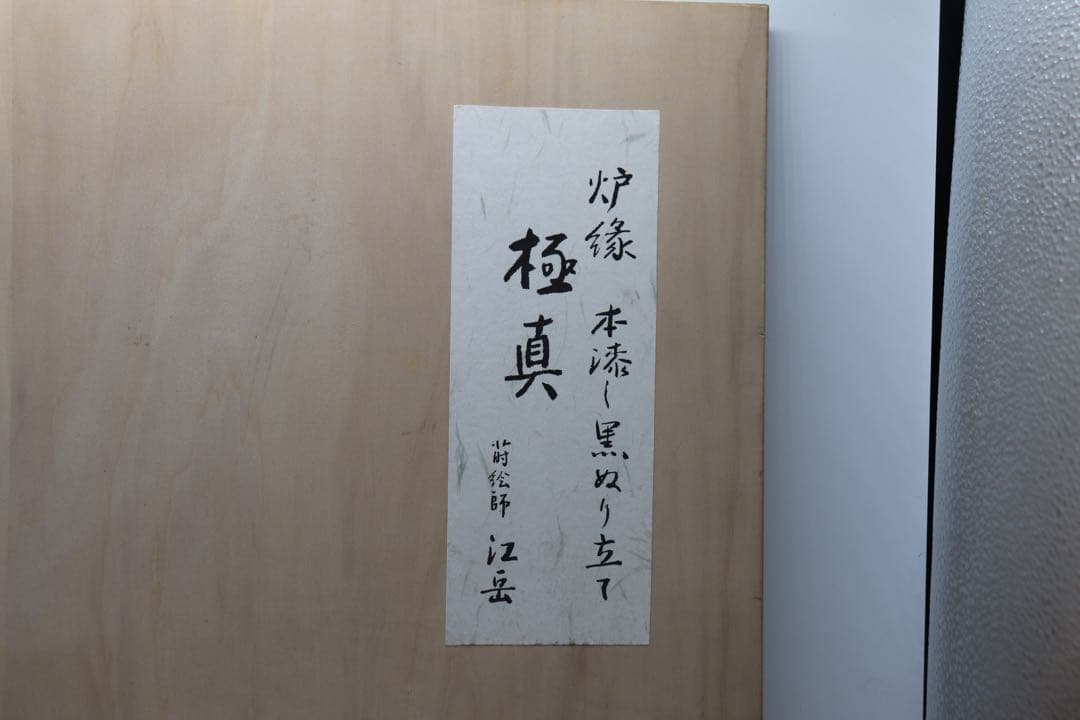 炉縁 本漆し黒ぬり立て
極真
蒔絵師 江岳